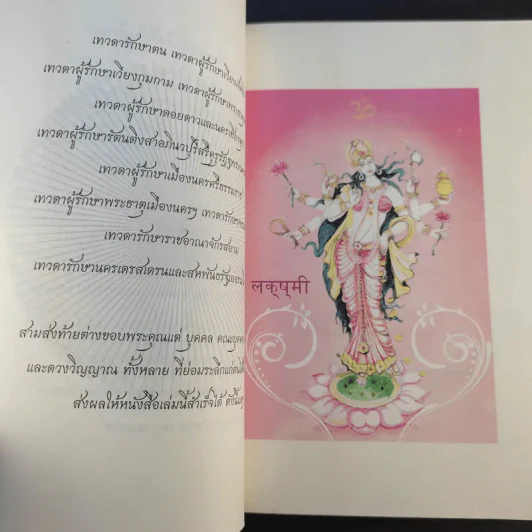 เทวดารักษาตน เทวดาผู้รักษาเวียง
เทวดาผู้รักษาเวียงกุมกาม เทวดาผู้รักษา
เทวดาผู้รักษาดอยดาวและนคร
เทวดาผู้รักษารัตนติงสาอภินวปุรี
เทวดาผู้รักษาเมืองนครศรีธรรม
เทวดาผู้รักษาพระธาตุเมืองนครฯ เทวดา
เทวดารักษาราชอาณาจักรสยาม
เทวดารักษานครเดรสเดรนและสหพันธรัฐ
สามสิ่งท้ายต่างขอบพระคุณแด่ บุคคล คณะบุคคล
และดวงวิญญาณ ทั้งหลาย ที่ย่อมระลึกแก่ตน
ส่งผลให้หนังสือเล่มนี้สำเร็จได้
ॐ
लक्ष्मी